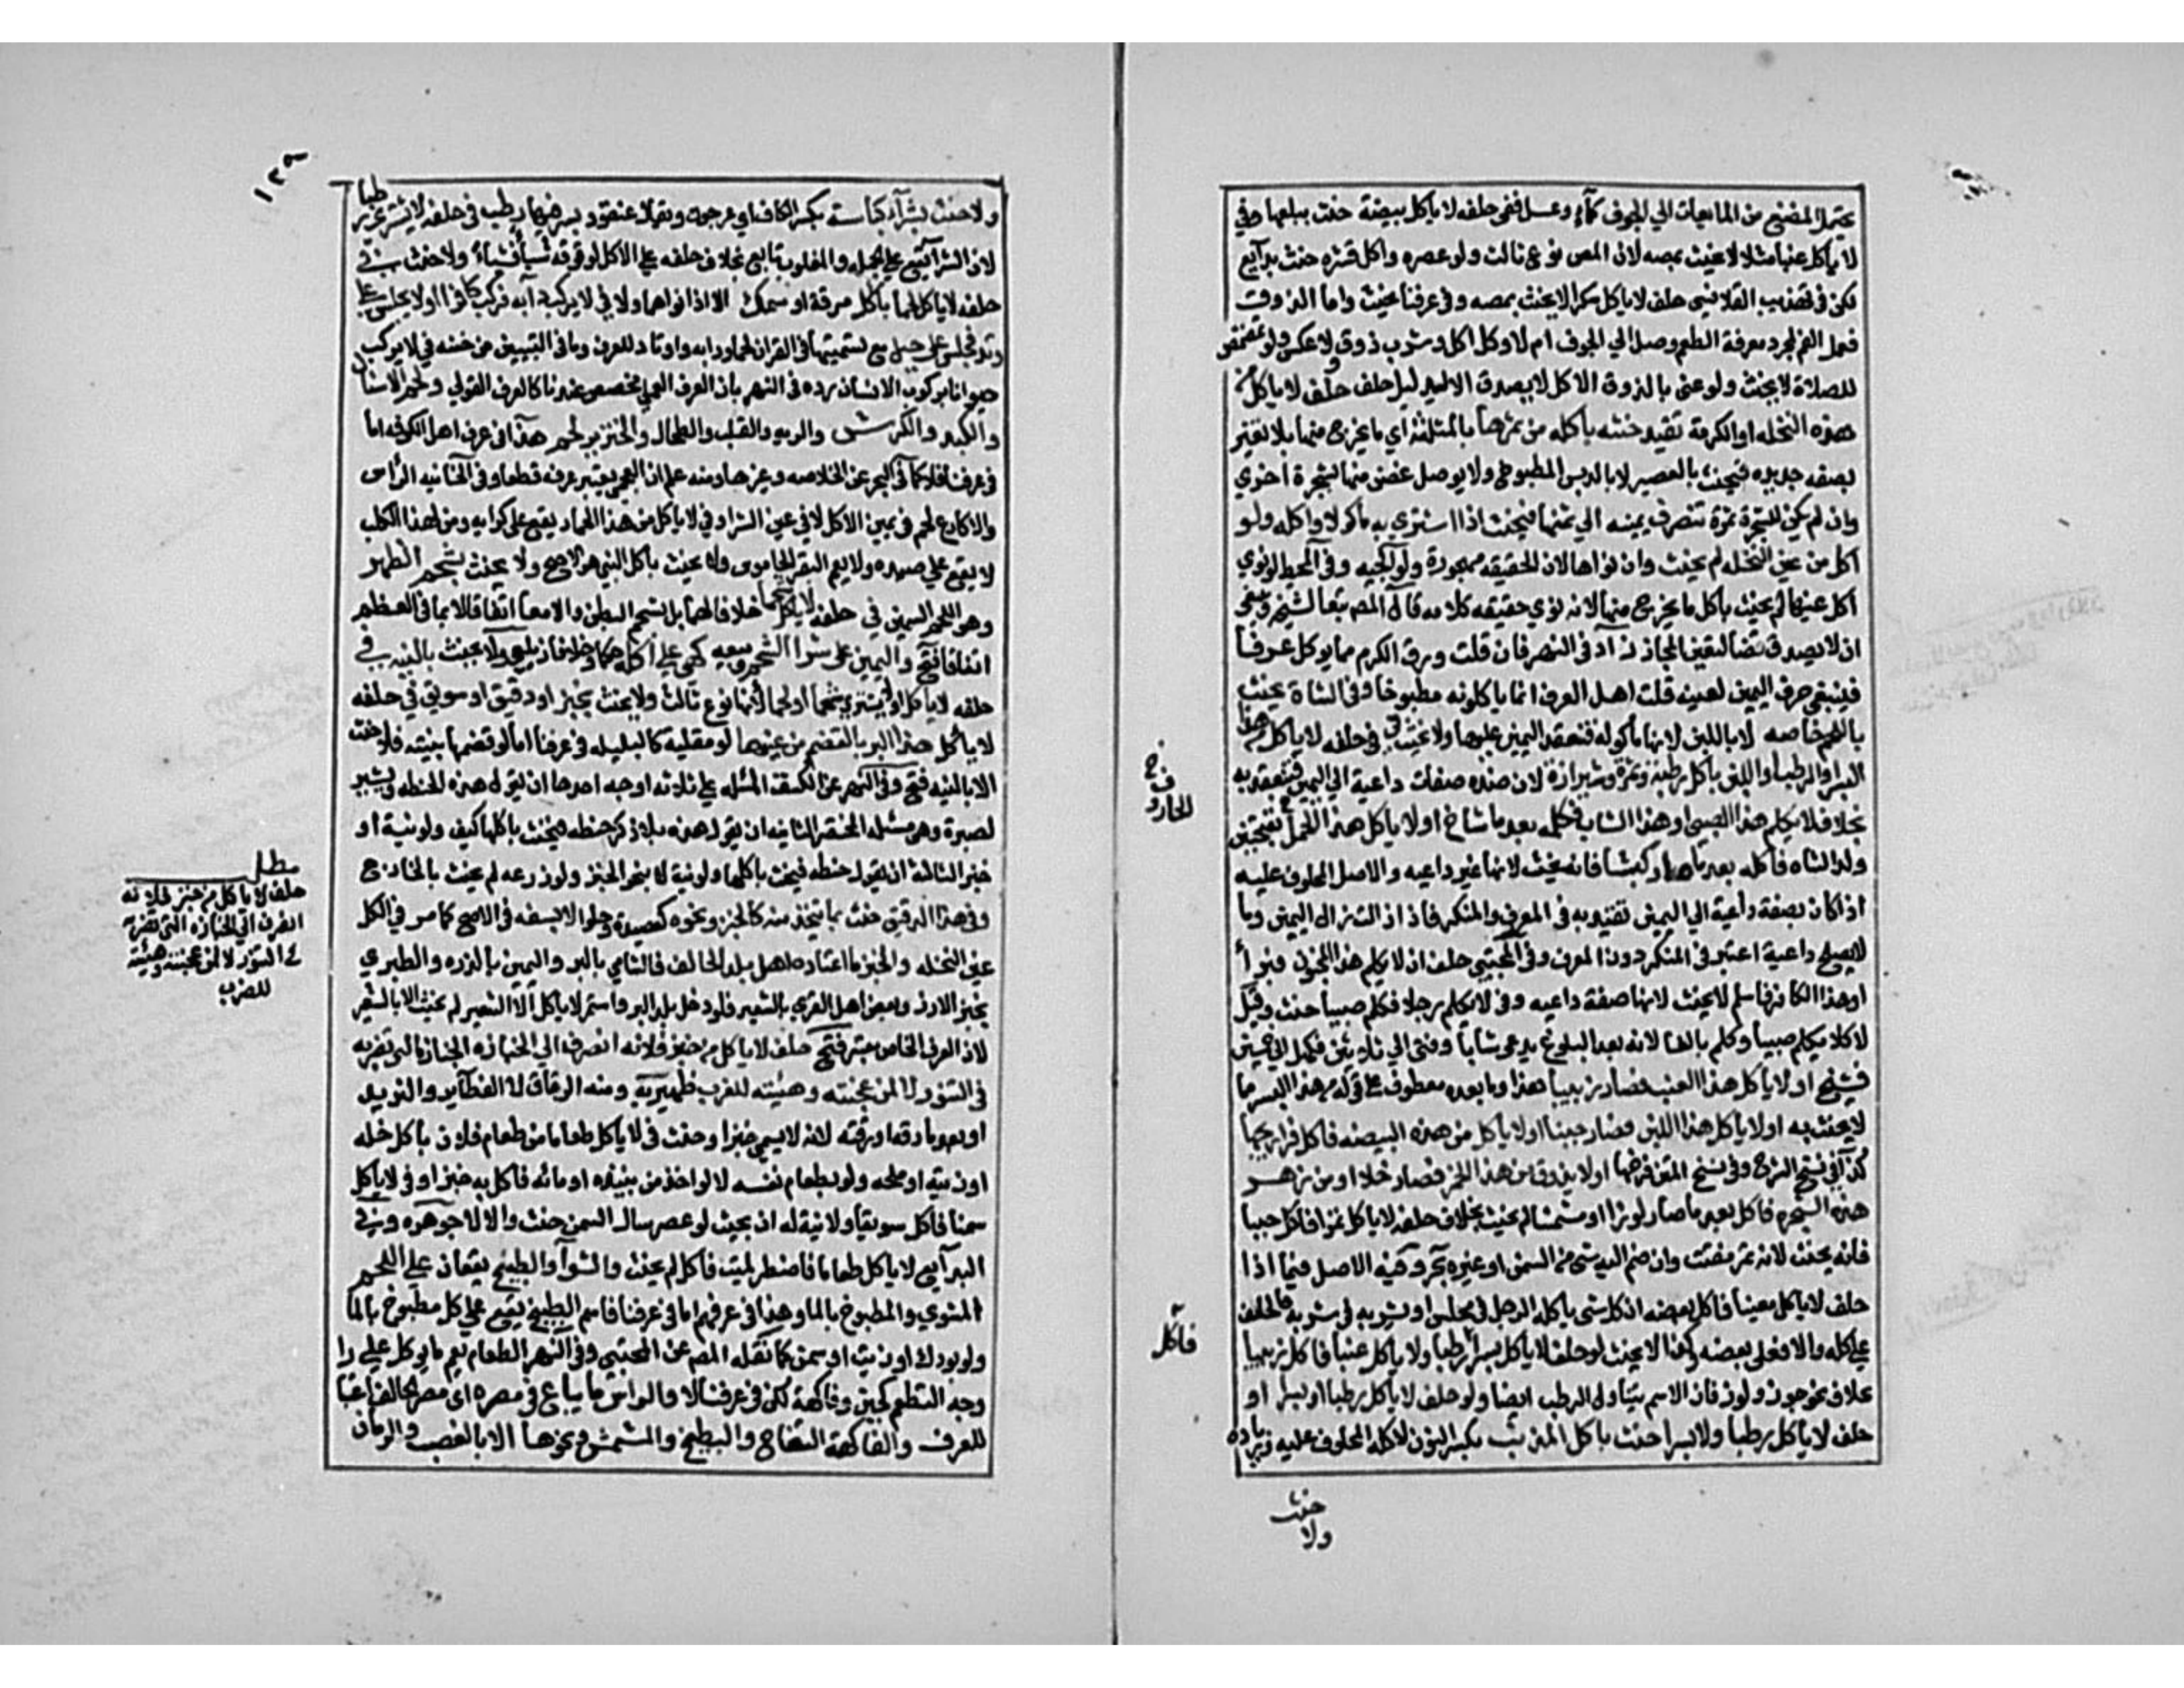 يحتمل المضغ من المايعات الي الجوف كمآء وعسل ففي حلفه لا ياكل بيضة حنث ببلعها وفي
لا ياكل عنبا مثلا لا يحنث بمصه لان المص نوع ثالث ولو عصره واكل قشره حنث بدآيع
لكن في تهذيب القلانسي حلف لا ياكل سكرا لا يحنث بمصه وفي عرفنا يحنث واما الذوق
فعمل الفم لمجرد معرفة الطعم وصل الي الجوف ام لا وكل اكل وشرب ذوق ولا عكس ولو تمضمض
للصلاة لا يحنث ولو عني بالذوق الاكل لا يصدق الا لدليل حلف لا ياكل من
هذه النخله او الكرمة تقيد حنثه باكله من ثمرها بالمثلثة اي ما يخرج منها بلا تغير
بصفه جديده فيحنث بالعصير لا بالدبس المطبوخ ولا بوصل غصن منها بشجرة اخري
وان لم يكن للشجرة ثمرة تنصرف يمينه الي ثمنها فيحنث اذا اشتري به ماكولا واكله ولو
اكل من عين النخله لم يحنث وان نواها لان الحقيقه مهجورة ولوالجيه وفي المحيط لو نوي
اكل عينها لم يحنث باكل ما يخرج منها لانه نوي حقيقه كلامه قال المص تبعا لشيخه وينبغي
ان لا يصدق قضا لتعين المجاز زآد في النهر فان قلت ورق الكرم مما يوكل عرفا
فينبغي صرف اليمين لعينه قلت اهل العرف انما ياكلونه مطبوخا وفي الشاة يحنث
باللحم خاصه لا باللبن لانها ماكوله فتنعقد اليمين عليها ولا يحنث في حلفه لا ياكل من هذا
البسر او الرطب او اللبن باكل رطبه وتمره وشيرازه لان هذه صفات داعية الي اليمين فيتقيد به
بخلاف لا يكلم هذا الصبي او هذا الشاب فكلمه بعد ما شاخ او لا ياكل هذا الحمل بفتحتين
ولد الشاه فاكله بعد ما صار كبشا فانه يحنث لانها غير داعيه والاصل المحلوف عليه
اذا كان بصفة داعية الي اليمين تقيد به في المعرف والمنكر فاذا زالت زال اليمين وما
لا يصلح داعية اعتبر في المنكر دون المعرف وفي المجتبي حلف ان لا يكلم هذا المجنون فبرأ
او هذا الكافر فاسلم لا يحنث لانها صفة داعيه وفي لا يكلم رجلا فكلم صبيا حنث وقيل
لا كلا يكلم صبيا وكلم بالغا لانه بعد البلوغ يدعي شابا وفتي الي ثلاثين فكهل الي خمسين
فشيخ او لا ياكل هذا العنب فصار زبيبا هذا وما بعده معطوف علي قوله من هذا البسر مما
لا يحنث به او لا ياكل هذا اللبن فصار جبنا او لا ياكل من هذه البيضه فاكل فراريجها
كذآ في نسخ الشرح وفي نسخ المتن فرخها او لا يذوق من هذا الخمر فصار خلا او من زهر
هذه الشجره فاكل بعد ما صار لوزا او مشمشا لم يحنث بخلاف حلفه لا ياكل تمرا فاكل حيسا
فانه يحنث لانه تمر مفتت وان ضم اليه شي من السمن او غيره بحر وفيه الاصل فيما اذا
حلف لا ياكل معينا فاكل بعضه ان كل شي ياكله الرجل في مجلس او يشربه في شربه فالحلف
علي كله والا فعلي بعضه وكذا لا يحنث لو حلف لا ياكل بسرا فاكل رطبا ولا ياكل عنبا فاكل زبيبا
بخلاف نحو جوز ولوز فان الاسم يتناول الرطب ايضا ولو حلف لا ياكل رطبا او بسرا او
حلف لا ياكل رطبا ولا بسرا حنث باكل المذنب بكسر النون لاكله المحلوف عليه وزياده
ف خ
الجارو
فآكل
حنث
ولا
١٢٩
ولا حنث بشرآء كباسة بكسر الكاف اي عرجون ويقال عنقود بسر فيها رطب في حلفه لا يشتري رطبا
لان الشرآ يقع علي الجمله والمغلوب تابع بخلاف حلفه علي الاكل لوقوعه شيأ فشيأ ولا حنث في
حلفه لا ياكل لحما باكل مرقة او سمك الا اذا نواهما ولا في لا يركب دآبه فركب كافرا او لا يجلس علي
وتد فجلس علي جبل مع تسميتها في القران لحما ودابه واوتاد للعرف وما في التبيين من حنثه في لا يركب
حيوانا بركوب الانسان رده في النهر بان العرف العملي مخصص عندنا كالعرف القولي ولحم الانسان
والكبد والكرش والريه والقلب والطحال والخنزير لحم هذا في عرف اهل الكوفه اما
في عرفنا فلا كما في البحر عن الخلاصه وغيرها ومنه علم ان العجمي يعتبر عرفه قطعا وفي الخانيه الرأس
والاكارع لحم في يمين الاكل لا في يمين الشرا وفي لا ياكل من هذا الحمار يقع علي كرايه ومن هذا الكلب
لا يقع علي صيده ولا يعم البقر الجاموس ولا يحنث باكل الني هو الاصح ولا يحنث بشحم الظهر
وهو اللحم السمين في حلفه لا ياكل شحما خلافا لهما بل بشحم البطن والامعا اتفاقا لا بما في العظم
اتفاقا فتح واليمين علي شرا الشحم وبيعه كهي علي اكله حكما وخلافا زيلعي ولا يحنث باليه في
حلفه لا ياكل او لا يشتري شحما او لحما لانها نوع ثالث ولا يحنث بخبز او دقيق او سويق في حلفه
لا ياكل هذا البر الا بالقضم من عينها لو مقلية كالبليله في عرفنا اما لو قضمها بنيته فلا حنث
الا بالنيه فتح وفي النهر عن الكشف المسئله علي ثلاثه اوجه احدها ان يقول هذه الحنطه ويشير
لصبرة وهي مسئله المختصر الثانيه ان يقول هذه بلا ذكر حنطه فيحنث باكلها كيف ولو نية او
خبز الثالثة ان يقول حنطه فيحنث باكلها ولو نية لا بنحو الخبز ولو زرعه لم يحنث بالخارج
وفي هذا الدقيق حنث بما يتخذ منه كالخبز ونحوه كعصيدة وحلوا لا بسفه في الاصح كما مر في اكل
عين النخله والخبز ما اعتاده اهل بلد الحالف فالشامي بالبر واليمين بالذره والطبري
بخبز الارز وبعض اهل القري بالشعير فلو دخل بلد البر واستمر لا ياكل الا الشعير لم يحنث الا بالشعير
لان العرف الخاص معتبر فتح حلف لا ياكل من خبز فلانه انصرف الي الخبازه التي تضربه
في التنور لا لمن عجنته وهيئته للضرب ظهيرية ومنه الرقاق لا القطايف والثريد
او بعد ما دقه او فته لانه لا يسمي خبزا وحنث في لا ياكل طعاما من طعام فلان باكل خله
او زيته او ملحه ولو بطعام نفسه لا لو اخذ من نبيذه او مائه فاكل به خبزا وفي لا ياكل
سمنا فاكل سويقا ولا نية له ان بحيث لو عصر سال السمن حنث والا لا جوهره وفي
البدآيع لا ياكل طعاما فاضطر لميتة فاكل لم يحنث والشوآ والطبيخ يقعان علي اللحم
المشوي والمطبوخ بالما وهذا في عرفهم اما في عرفنا فاسم الطبيخ يقع علي كل مطبوخ بالما
ولو بودك او زيت او سمن كما نقله المص عن المجتبي وفي النهر الطعام يعم ما يوكل علي
وجه التطعم كجبن وفاكهة لكن في عرفنا لا والراس ما يباع في مصره اي مصر الحالف اعتبارا
للعرف والفاكهة التفاح والبطيخ والمشمش ونحوها لا العنب والرمان
مطلب
حلف لا ياكل من خبز فلانه
انصرف الي الخبازه التي تضربه
في التنور لا لمن عجنته وهيئته
للضرب